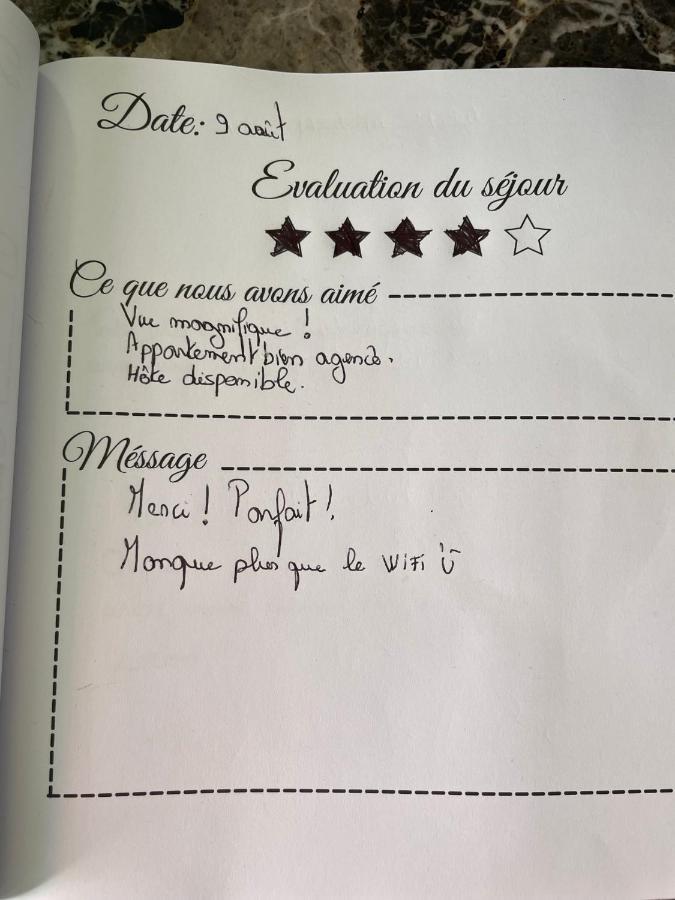 Date: 9 août
Evaluation du séjour
Ce que nous avons aimé
Vue magnifique !
Appartement bien agencé.
Hôte disponible.
Méssage
Merci ! Parfait !
Manque plus que le WiFi